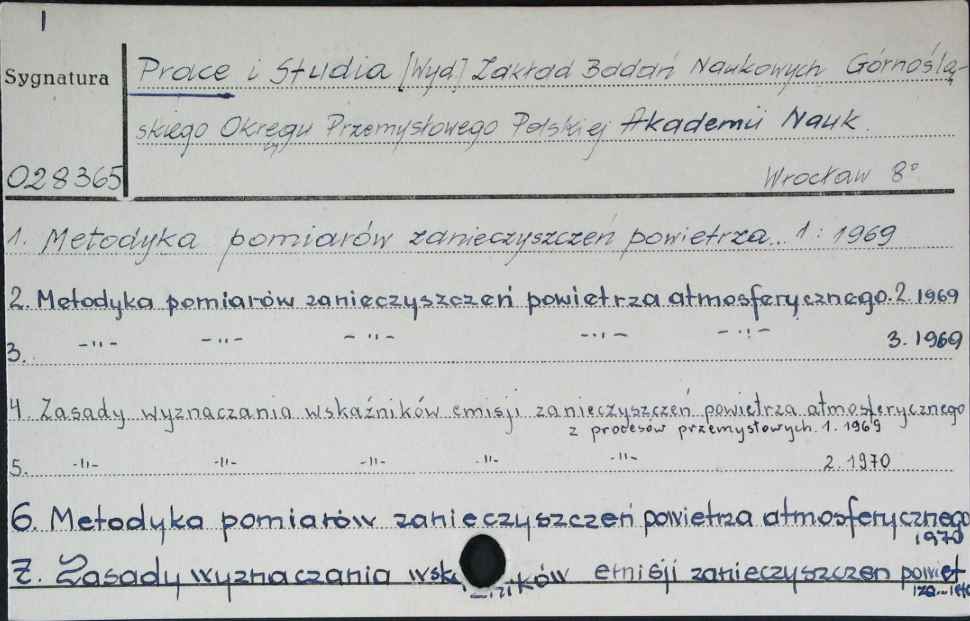 1
Sygnatura
Prace i Studia [Wyd] Zakład Badań Naukowych Górnoślą-
skiego Okręgu Przemysłowego Polskiej Akademii Nauk
028365
Wrocław 8°
1. Metodyka pomiarów zanieczyszczeń powietrza... 1: 1969
2. Metodyka pomiarów zanieczyszczeń powietrza atmosferycznego. 2. 1969
3. -"- -"- -"- -"- -"- 3. 1969
4. Zasady wyznaczania wskaźników emisji zanieczyszczeń powietrza atmosferycznego
z procesów przemysłowych. 1. 1969
5. -"- -"- -"- -"- -"- 2. 1970
6. Metodyka pomiarów zanieczyszczeń powietrza atmosferycznego
1970
7. Zasady wyznaczania emisji zanieczyszczen powiet-